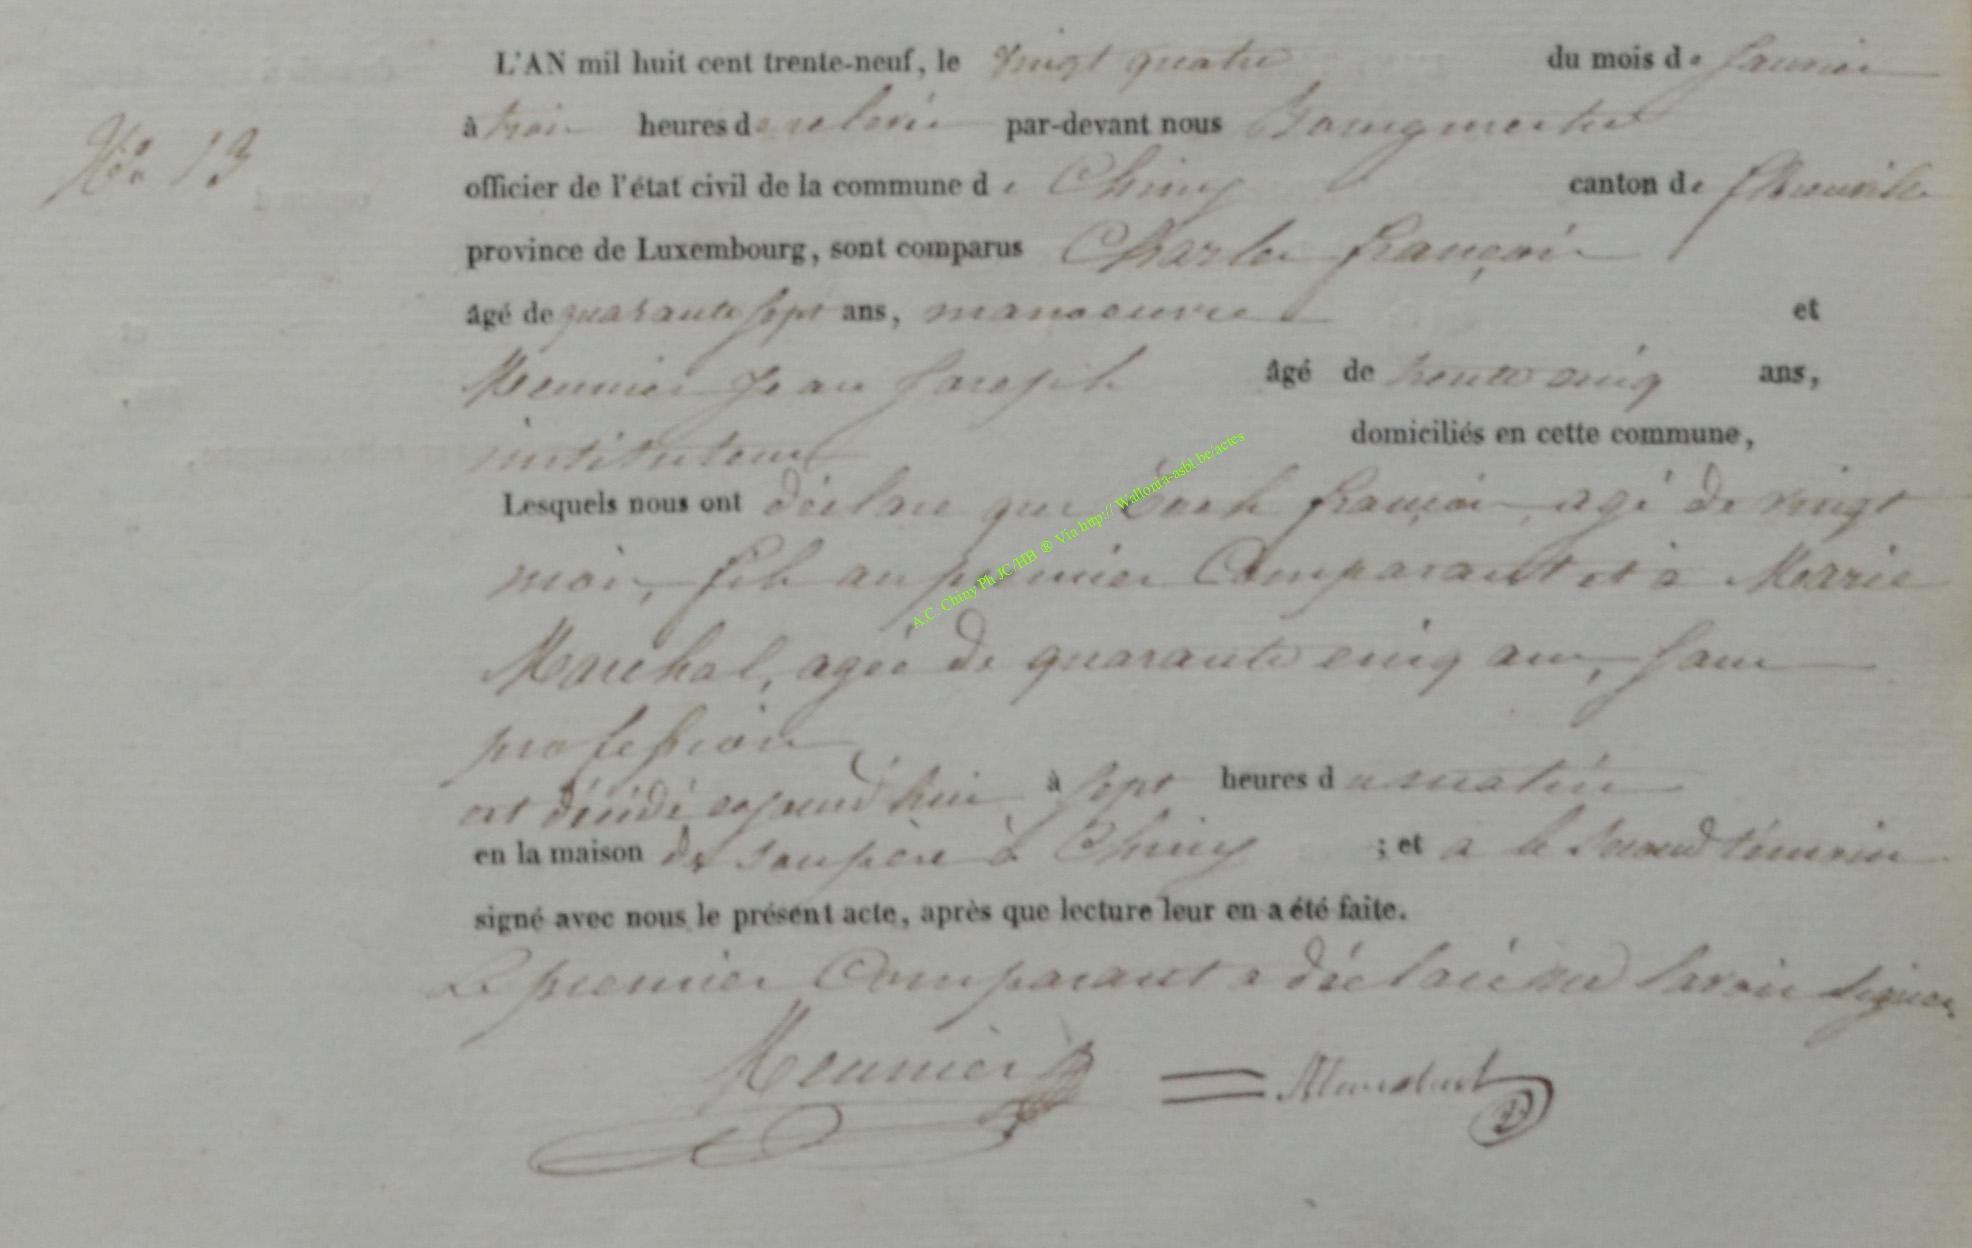 L'AN mil huit cent trente-neuf, le vingt quatre du mois de Janvier
No 13
à trois heures de relevée par-devant nous Bourgmestre
officier de l'état civil de la commune de Chiny canton de florenville
province de Luxembourg, sont comparus Charles françois
âgé de quarante sept ans, manoeuvre et
Meunier Jean Joseph âgé de trente cinq ans,
instituteur domiciliés en cette commune,
Lesquels nous ont déclaré que françois agé de vingt
mois, fils au premier Comparant et à Marie
Marchal, agée de quarante cinq ans, sans
profession
est décédé aujourd'hui à sept heures du matin
en la maison de son père à Chiny ; et a le second témoin
signé avec nous le présent acte, après que lecture leur en a été faite.
Le premier Comparant a déclaré ne savoir signer.
Meunier
A.C. Chiny Ph JC/HB ® Via http:// Wallonia-asbl.be/actes